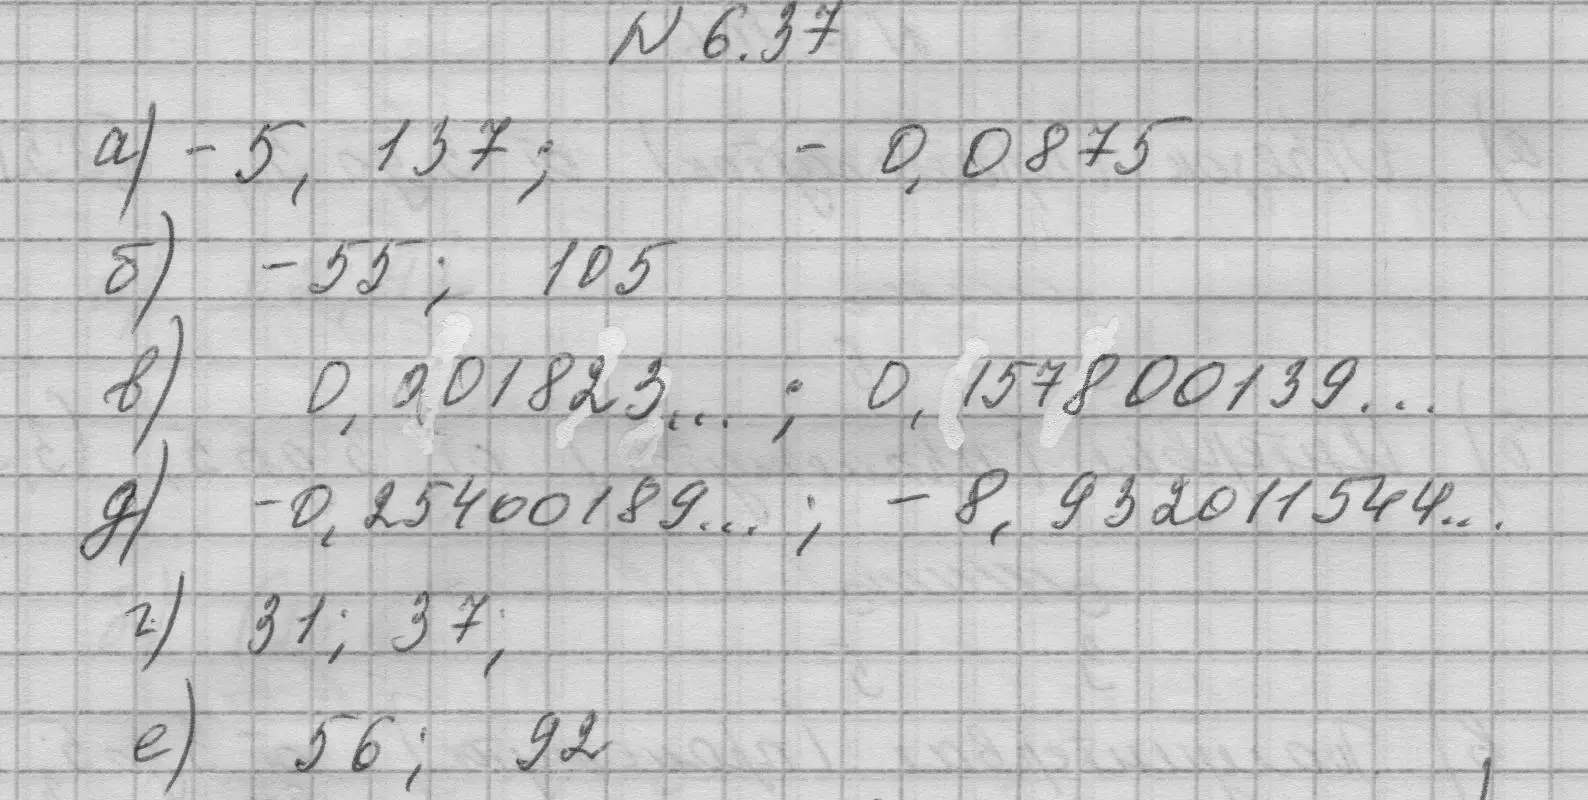 № 6.37
а) -5, 137; - 0,0875
б) -55; 105
в) 0, 201823...; 0, 157800139...
д) -0, 25400189...; - 8, 932011544...
г) 31; 37;
е) 56; 92